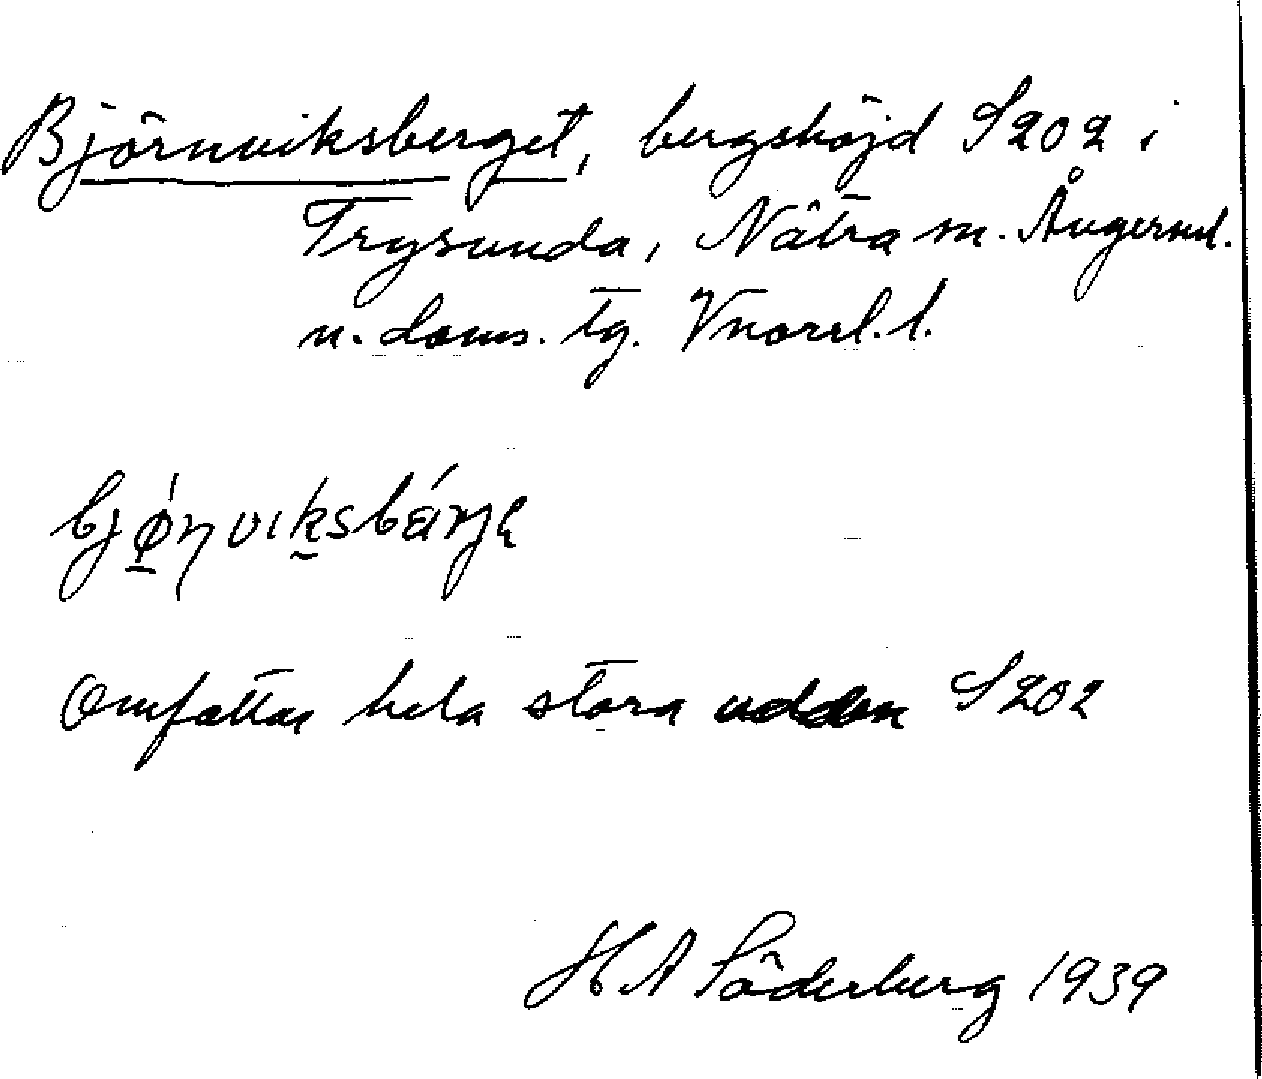 Björnviksberget, bergshöjd S 202 i
Trysunda, Nätra sn. Ångerml.
n. doms. tg. Vnorrl. l.
bjǿ̱ɳvik̠sbárjɛ
Omfattar hela stora udden S 202
H A Söderberg 1939